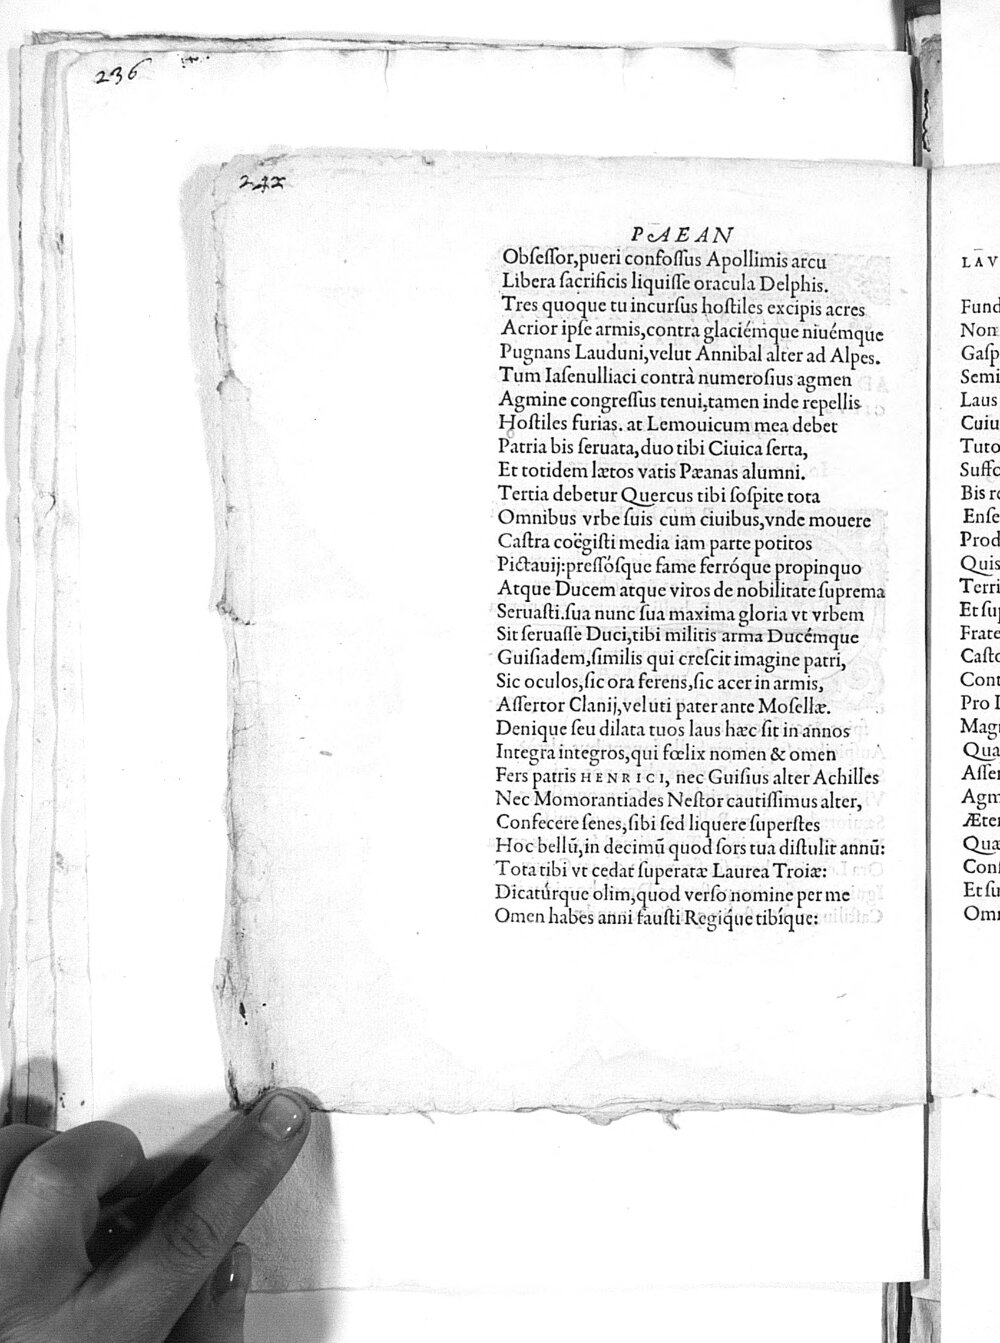 236
242
PAEAN
Obſeſſor,pueri confoſſus Apollimis arcu
Libera ſacrificis liquiſſe oracula Delphis.
Tres quoque tu incurſus hoſtiles excipis acres
Acrior ipſe armis,contra glaciémque niuémque
Pugnans Lauduni,velut Annibal alter ad Alpes.
Tum Iaſenulliaci contrà numeroſius agmen
Agmine congreſſus tenui,tamen inde repellis
Hoſtiles furias. at Lemouicum mea debet
Patria bis ſeruata,duo tibi Ciuica ſerta,
Et totidem lætos vatis Pæanas alumni.
Tertia debetur Quercus tibi ſoſpite tota
Omnibus vrbe ſuis cum ciuibus,vnde mouere
Caſtra coëgiſti media iam parte potitos
Pictauij:preſſóſque fame ferróque propinquo
Atque Ducem atque viros de nobilitate ſuprema
Seruaſti.ſua nunc ſua maxima gloria vt vrbem
Sit ſeruaſſe Duci,tibi militis arma Ducémque
Guiſiadem,ſimilis qui creſcit imagine patri,
Sic oculos,ſic ora ferens,ſic acer in armis,
Aſſertor Clanij,veluti pater ante Moſellæ.
Denique ſeu dilata tuos laus hæc ſit in annos
Integra integros,qui fœlix nomen & omen
Fers patris HENRICI, nec Guiſius alter Achilles
Nec Momorantiades Neſtor cautiſſimus alter,
Confecere ſenes,ſibi ſed liquere ſuperſtes
Hoc bellū,in decimū quod ſors tua diſtulit annū:
Tota tibi vt cedat ſuperatæ Laurea Troiæ:
Dicatúrque olim,quod verſo nomine per me
Omen habes anni fauſti Regique tibíque:
LAV
Fund
Non
Gaſp
Semi
Laus
Cuiu
Tuto
Suffc
Bis re
Enſe
Prod
Quis
Terri
Et ſup
Frate
Caſto
Cont
Pro L
Magn
Qua
Aſſer
Agm
Æter
Quæ
Conſ
Et ſu
Omn